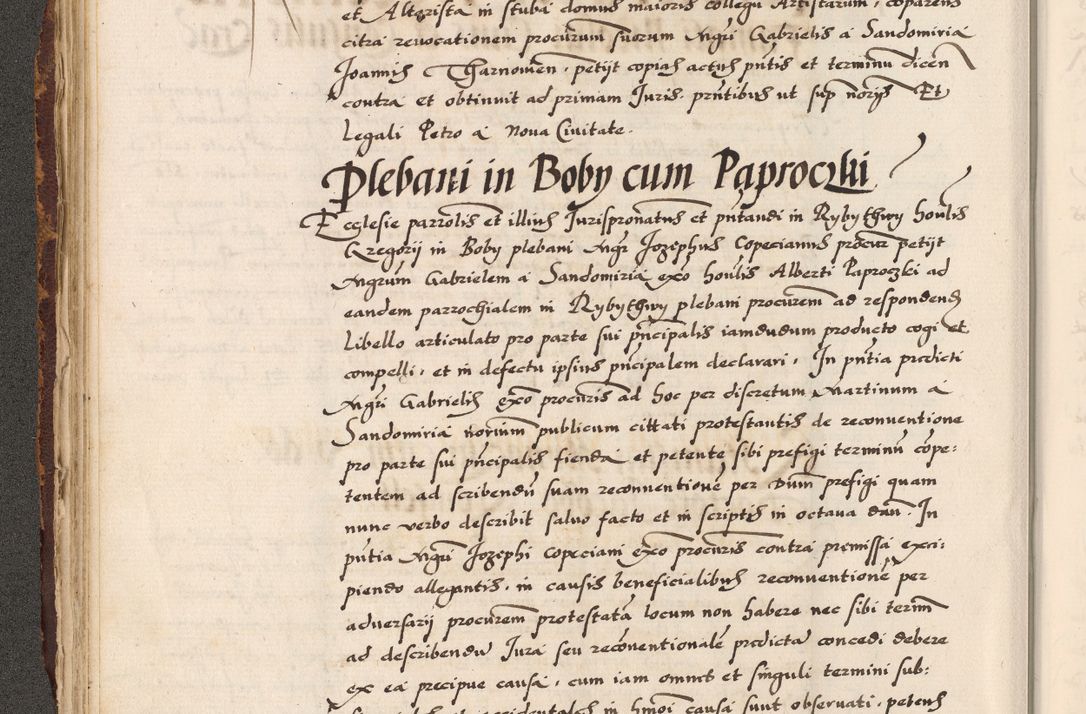 et Altarista in stuba domus maioris collegii Artistarum, coparens
citra revocationem procurum suorum Mgri Gabrielis a Sandomiria
Joannis Tharnowen, petijt copias actus pntis et terminu dicen
contra et obtinuit ad primam Juris. pntibus ut sup noris Et
Legali Petro a Nova Civitate.
Plebani in Boby cum Paproczki
Ecclesie parrolis et illius Jurispronatus et pntandi in Rybythwy honlis
Gregorij in Boby plebani Mgr Jozephus Copecianus procur petijt
Mgrum Gabrielem a Sandomiria exo honlis Alberti Paproczki ad
eandem parrochialem in Rybythwy plebani procurem ad respondend
Libello articulato pro parte sui pncipalis iamdudum producto cogi et
compelli, et in defectu ipsius pncipalem declarari, In pntia prdicti
Mgri Gabrielis exo procuris ad hoc per discretum Martinum a
Sandomiria norium publicum cittati protestantis de reconventione
pro parte sui pncipalis fienda et petente sibi prefigi terminu compe:
tentem ad scribendu suam reconventione per Dum prefigi quam
nunc verbo describit salvo facto et in scriptis in octava dun. In
pntia Mgri Jozephi Copeciani exo procuris contra premissa exci:
piendo allegantis, in causis beneficialibus reconventione per
adversarij procurem protestata locum non habere nec sibi termn
ad describendu Jura seu reconventionale prdicta concedi debere
ex ea precipue causa, cum iam omnes et singuli termini sub:
et accidentales in hmoi causa sunt observati, petens